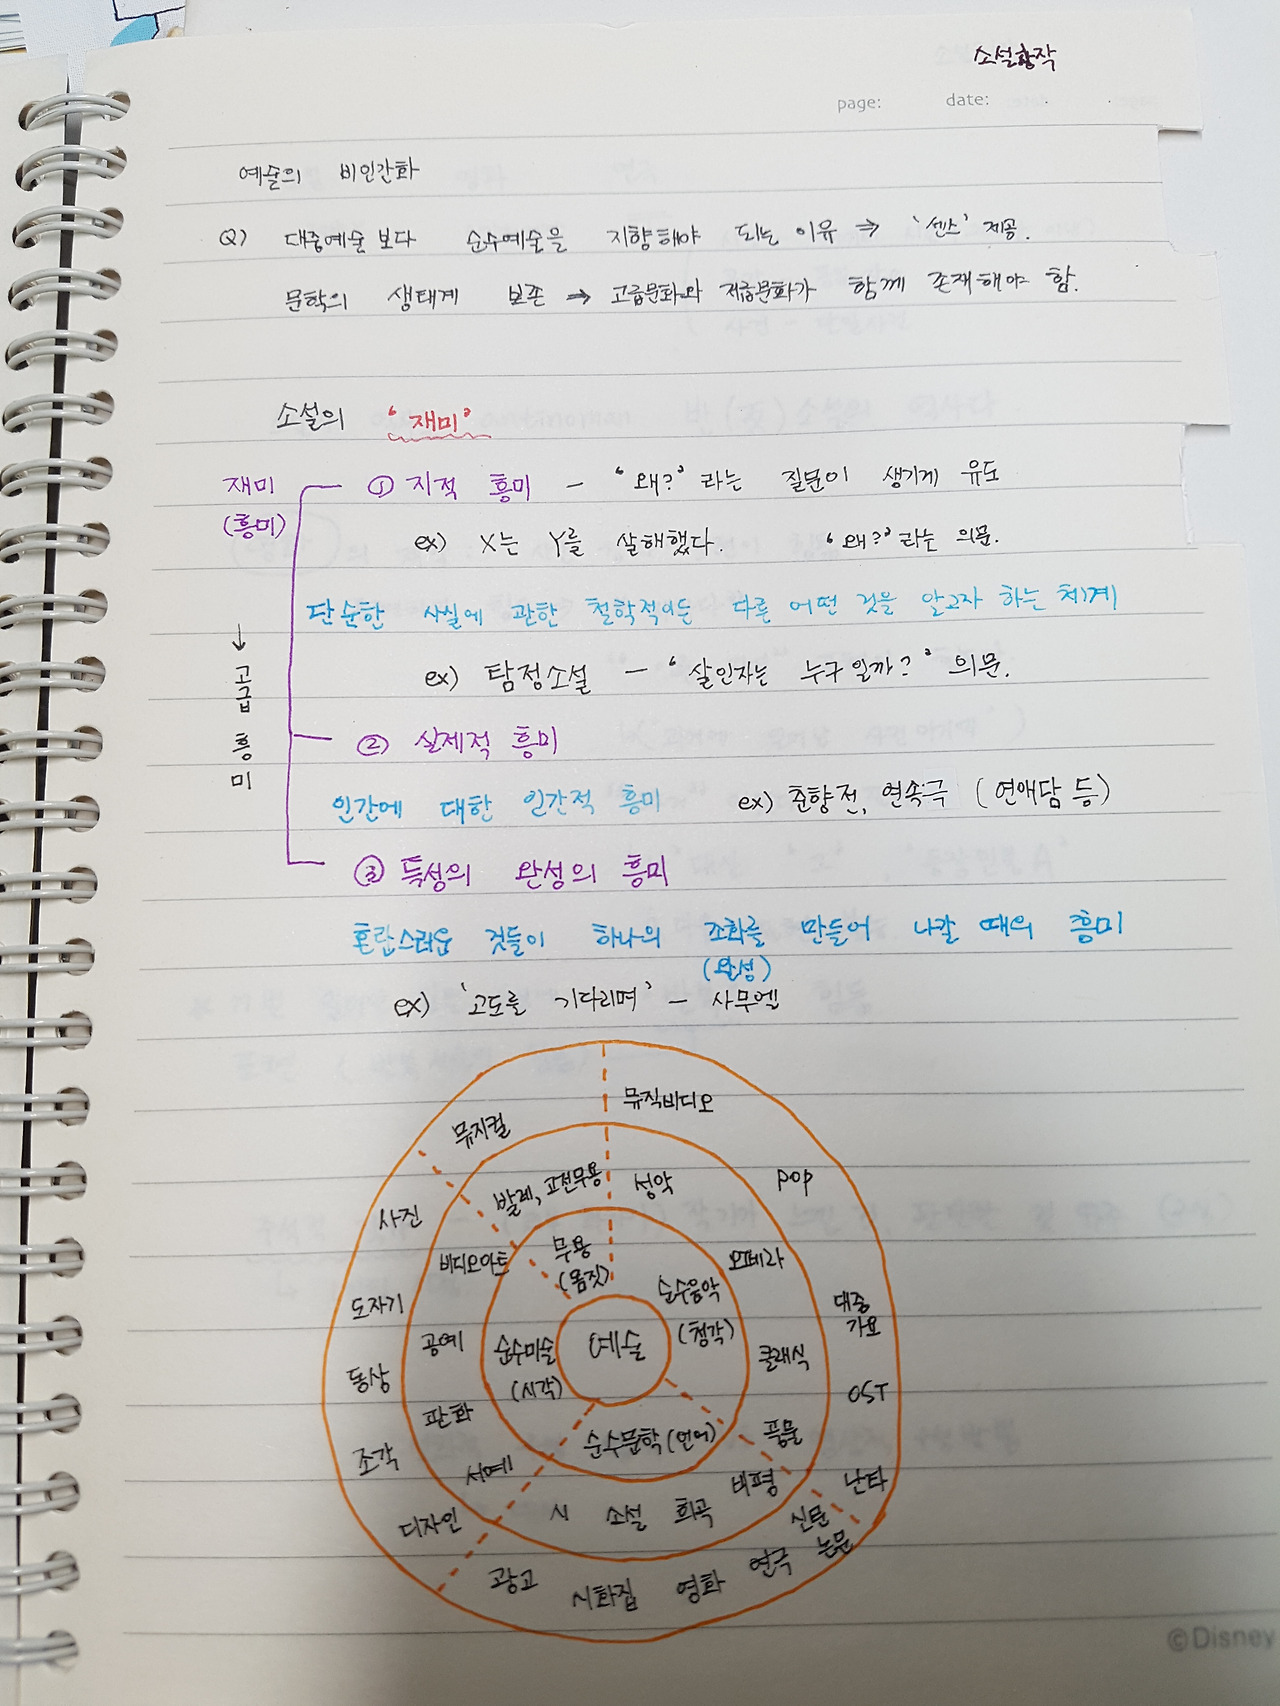 소설창작
page: date:
예술의 비인간화
Q) 대중예술 보다 순수예술을 지향해야 되는 이유 ⇒ '센스' 제공.
문학의 생태계 보존 ⇒ 고급문화와 저급문화가 함께 존재해야 함.
소설의 '재미'
재미 ① 지적 흥미 – '왜?' 라는 질문이 생기게 유도
(흥미)
ex) X는 Y를 살해했다. '왜?' 라는 의문.
단순한 사실에 관한 철학적이든 다른 어떤 것을 알고자 하는 체계
ex) 탐정소설 – '살인자는 누구일까?' 의문.
↓ 고급 흥미
② 실제적 흥미
인간에 대한 인간적 흥미 ex) 춘향전, 연속극 (연애담 등)
③ 특성의 완성의 흥미
혼란스러운 것들이 하나의 조화를 만들어 나갈 때의 흥미
(완성)
ex) '고도를 기다리며' – 사무엘
뮤지컬 뮤직비디오
발레, 고전무용 성악 pop
사진
비디오아트 무용 오페라
(몸짓) 순수음악
도자기 대중
가요
공예 순수미술 예술 (청각) 클래식
동상 (시각) OST
판화 순수문학(언어) 풍물
조각 서예 비평 난타
디자인 시 소설 희곡 신문
논문
광고 시화집 영화 연극
©Disney